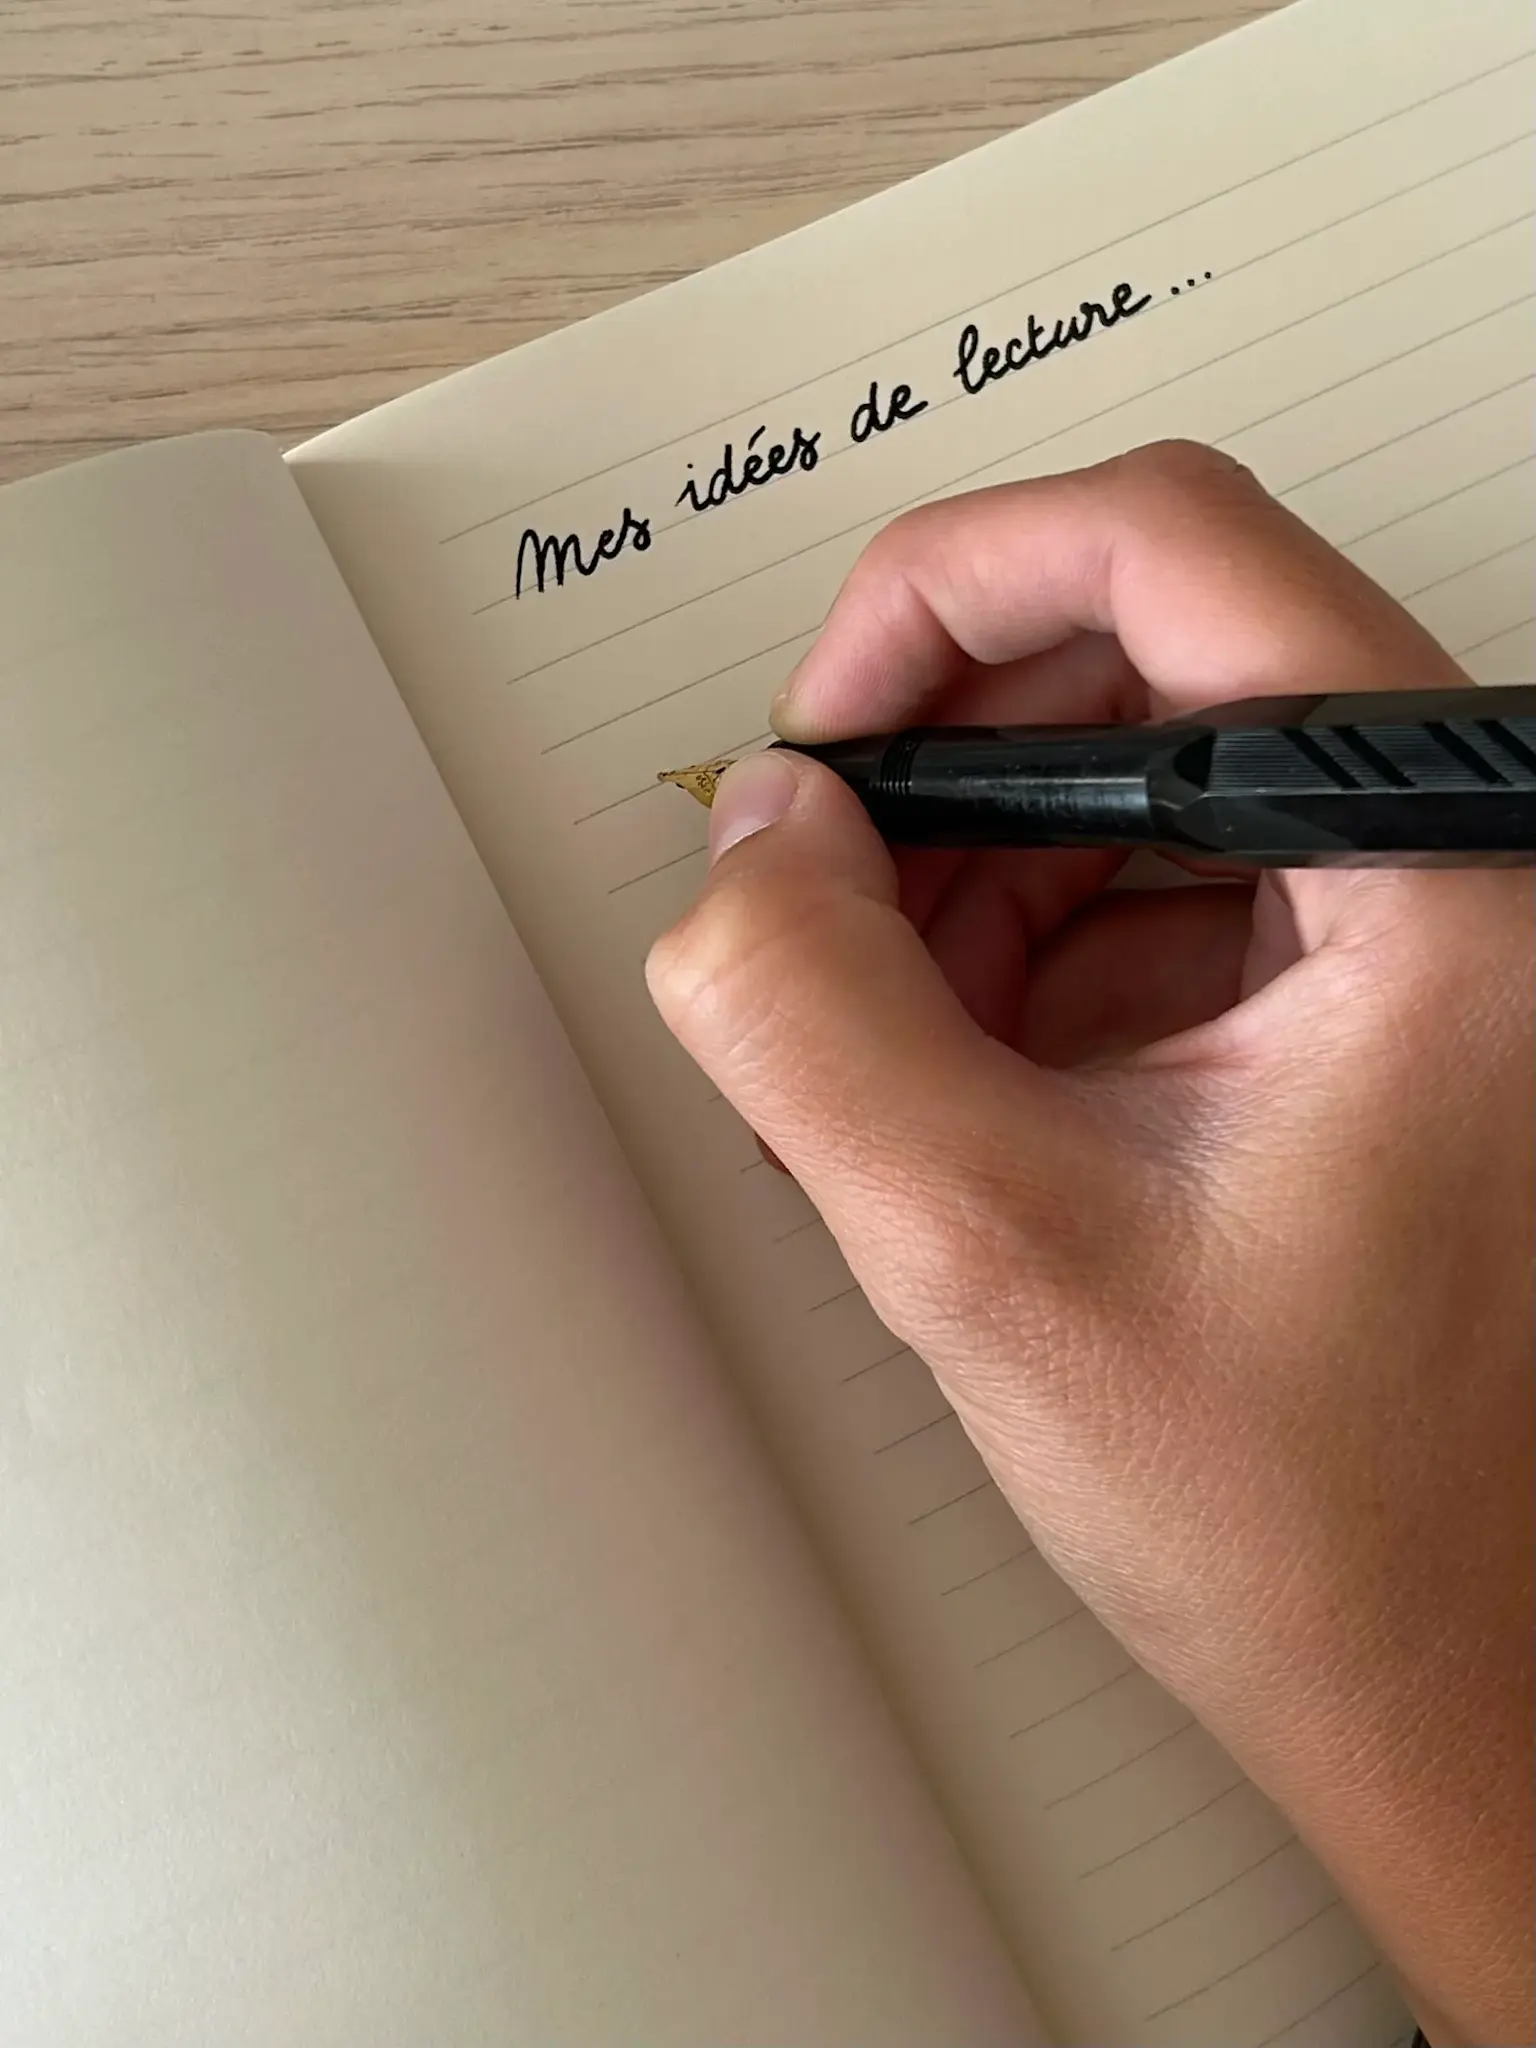 Mes idées de lecture...